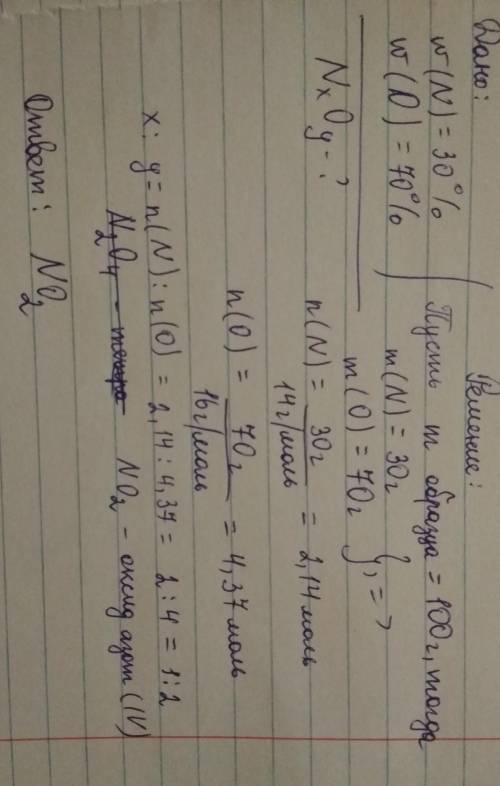 Дано:
Решение:
w(N) = 30%
w(O) = 70%
Пусть m образца = 100г, тогда
m(N) = 30г
m(O) = 70г }, = >
NxOy - ?
n(N) = 30г / 14г/моль = 2,14моль
n(O) = 70г / 16г/моль = 4,37моль
x : y = n(N) : n(O) = 2,14 : 4,37 = 2 : 4 = 1 : 2
N2O4 - NO2 - оксид азот (IV)
Ответ: NO2